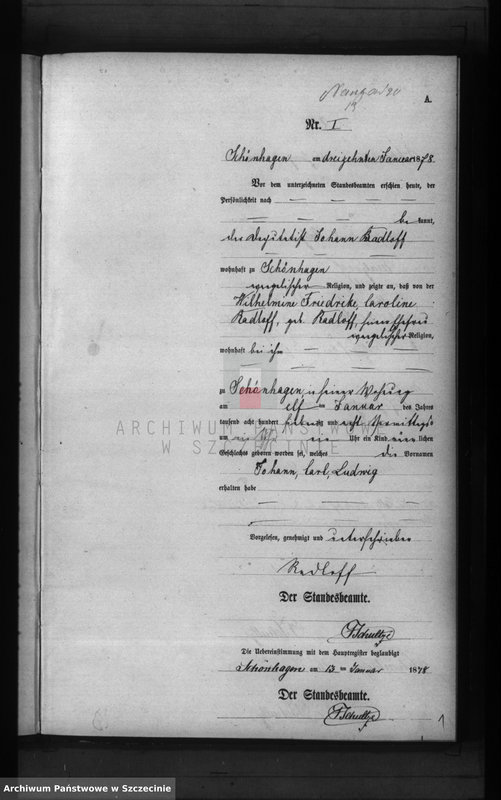 A.
Nr. I
Schönhagen am dreizehnten Januar 1878.
Vor dem unterzeichneten Standesbeamten erschien heute, der
Persönlichkeit nach
bekannt,
der Deputatist Johann Radloff
wohnhaft zu Schönhagen
evangelischer Religion, und zeigte an, daß von der
Wilhelmine Friedrike, Caroline
Radloff, geb. Radloff, seiner Ehefrau
evangelischer Religion,
wohnhaft bei ihm
zu Schönhagen, in seiner Wohnung
am elf Januar des Jahres
tausend acht hundert siebenzig und acht Vormittags
um Uhr ein Kind männlichen
Geschlechts geboren worden sei, welches die Vornamen
Johann, Carl, Ludwig
erhalten habe
Vorgelesen, genehmigt und unterschrieben
Radloff
Der Standesbeamte.
FSchultze
Die Uebereinstimmung mit dem Hauptregister beglaubigt
Schönhagen am 13 Januar 1878
Der Standesbeamte.
FSchultze
1
ARCHIWUM PAŃSTWOWE
W SZCZECINIE
Archiwum Państwowe w Szczecinie